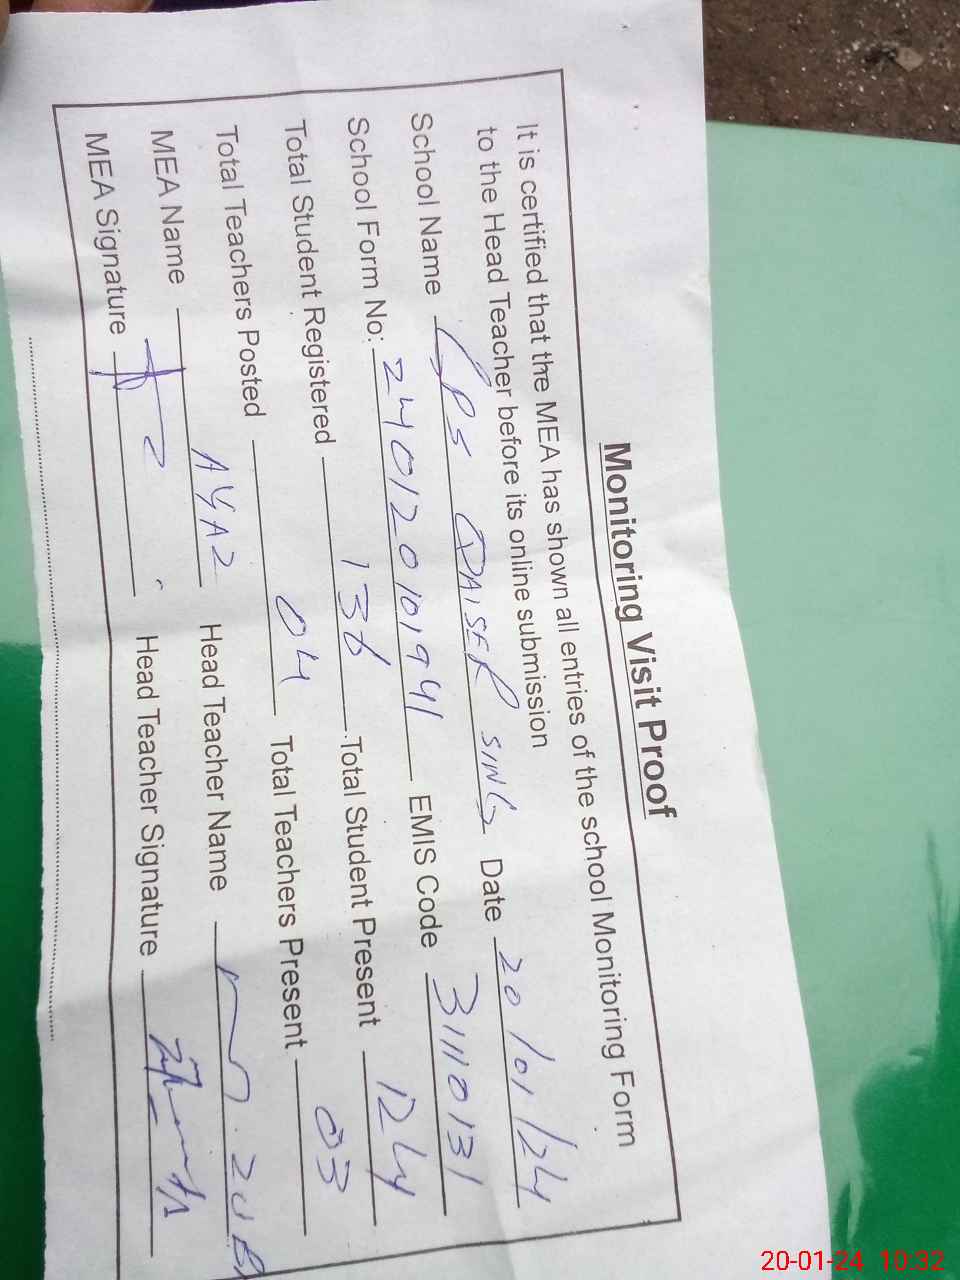 Monitoring Visit Proof
It is certified that the MEA has shown all entries of the school Monitoring Form
to the Head Teacher before its online submission
School Name GPS QAISER SING Date 20/01/24
School Form No: 240120101941 EMIS Code 31110131
Total Student Registered 136 Total Student Present 124
Total Teachers Posted 04 Total Teachers Present 03
MEA Name AYAZ Head Teacher Name
MEA Signature Head Teacher Signature
20-01-24 10:32